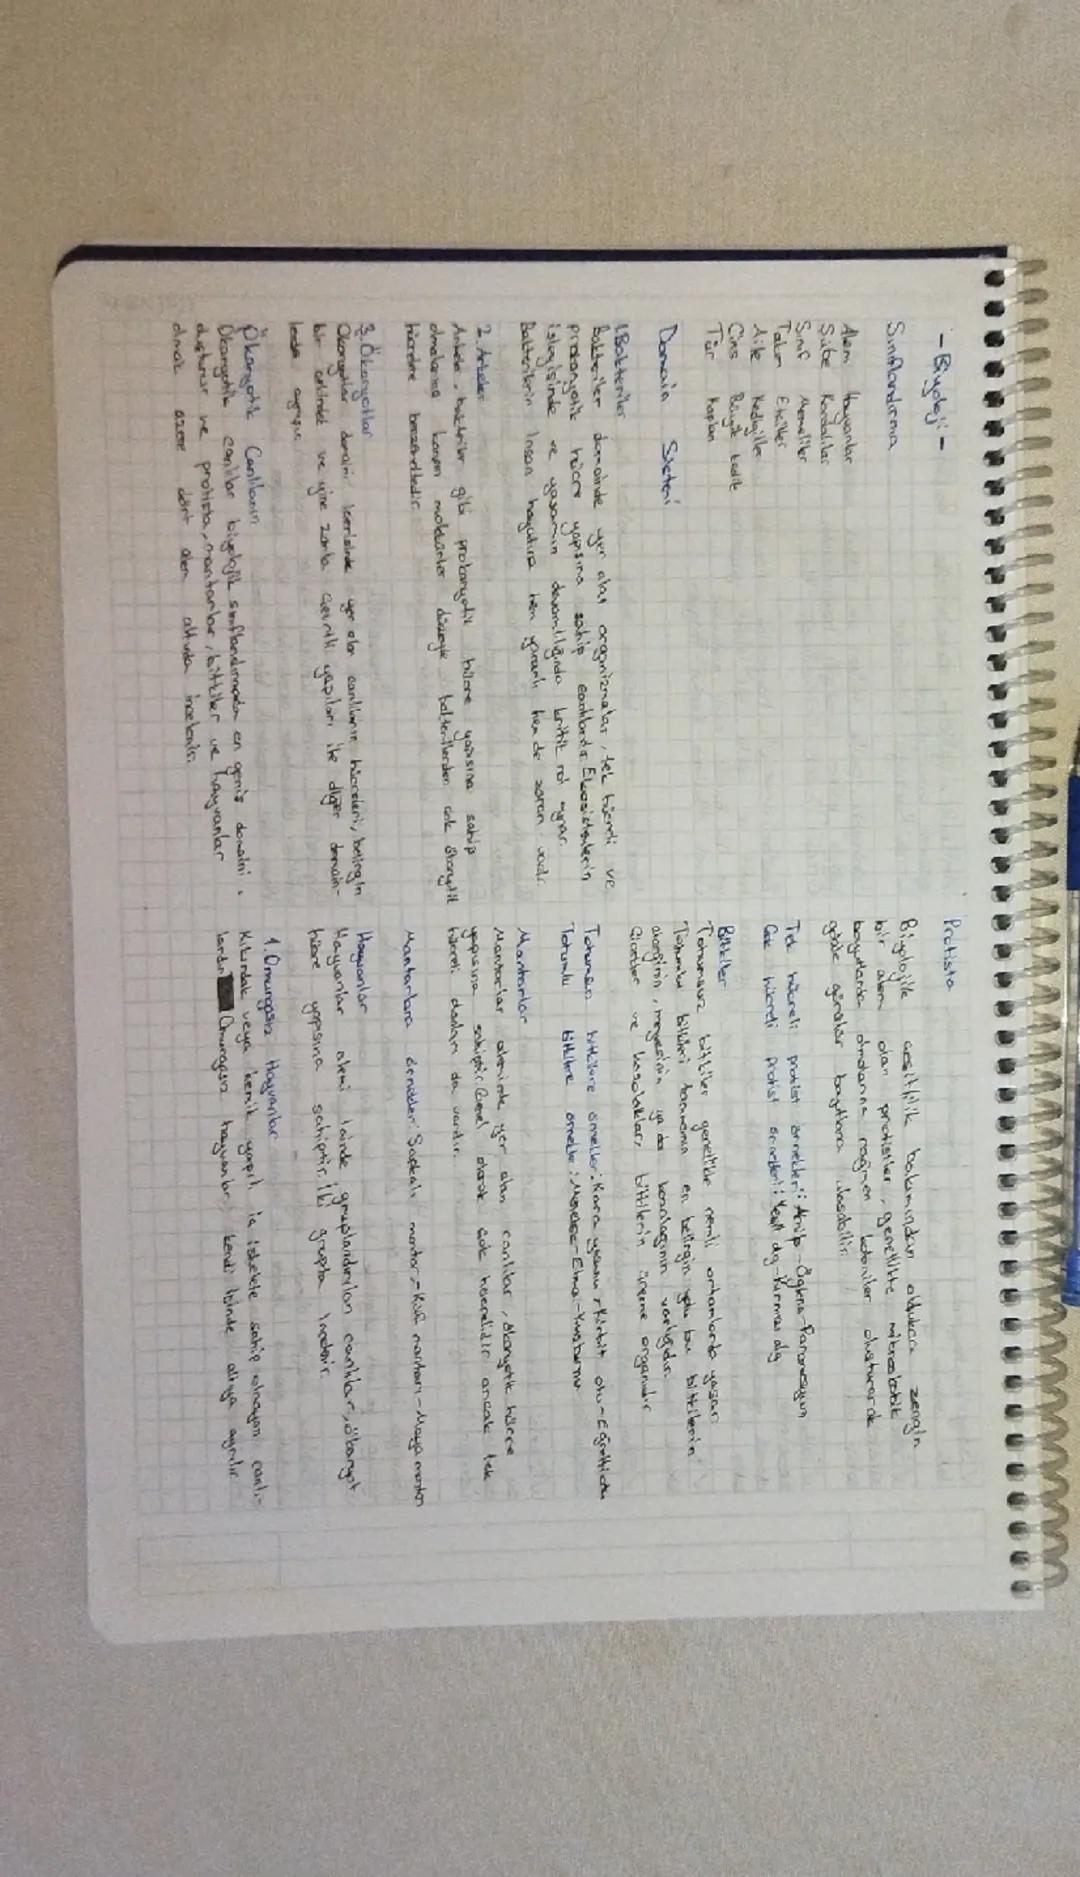 - Biyoloji -
Sınıflandırma
Alem Hayvanlar
Şube Kordalılar
Sınıf Memeliler
Takım Etçiller
Aile Kedigiller
Cins Büyük kedi
Tür Kaplan
Domain
1. Bakteriler
Bakteriler domainde yer alan organizmalar, tek hücreli ve
prokaryotik hücre yapısına sahip canlılardır. Ekosistemlerin
işleyişinde ve yaşamın devamlılığında kritik rol oynar.
Bakterilerin insan hayatına hem yararlı hem de zararı vardır.
2. Arkeler
Arkeler, bakteriler gibi prokaryotik hücre yapısına sahip
olmalarına moleküler düzeyde bakterilerden çok ökaryotik
hücrelere benzemektedir.
3. Ökaryotlar
Ökaryotlar domaini içerisinde yer alan canlıların hücreleri, belirgin
bir çekirdek ve yine zarla çevrili yapıları ile diğer domain-
lerden
Ökaryotik Canlıların
Ökaryotik canlılar biyolojik sınıflandırmada en geniş domaini
oluşturur ve protista, mantarlar, bitkiler ve hayvanlar
olmak üzere dört alem altında incelenir.
Protista
Biyolojik çeşitlilik bakımından oldukça zengin
bir alem olan protistler, genellikle mikroskobik
boyutlarda olmalarına rağmen koloniler oluşturarak
gözle görülür boyutlara ulaşabilir.
Tek hücreli protist örnekleri: Amip - Öglena - Paramesyum
Çok hücreli protist örnekleri: Yeşil alg - Kırmızı alg
Bitkiler
Tohumsuz bitkiler genellikle nemli ortamlarda yaşar.
Tohumlu bitkileri tanımanın en belirgin yolu bu bitkilerin
çiçeğinin, meyvesinin ya da kozalağının varlığıdır.
Çiçekler ve kozalaklar, bitkilerin üreme organıdır
Tohumsuz bitkilere örnekler: Kara yosunu - Kibrit otu - Eğrelti otu
Tohumlu bitkilere örnekler: Menekşe - Elma - Yuvşturma
Mantarlar
Mantarlar aleminde yer alan canlılar, ökaryotik hücre
yapısına sahiptir. Genel olarak çok hücrelidir ancak tek
hücreli olanları da vardır.
Mantarlara örnekler: Şapkalı mantar - Küf mantarı - Maya mantarı
Hayvanlar
Hayvanlar alemi içinde gruplandırılan canlılar, ökaryot
hücre yapısına sahiptir. İki grupta incelenir.
1. Omurgasız Hayvanlar
Kıkırdak veya kemik yapılı iç iskelete sahip olmayan canlı-
lardır. Omurgasız hayvanlar, kendi içinde altıya ayrılır.